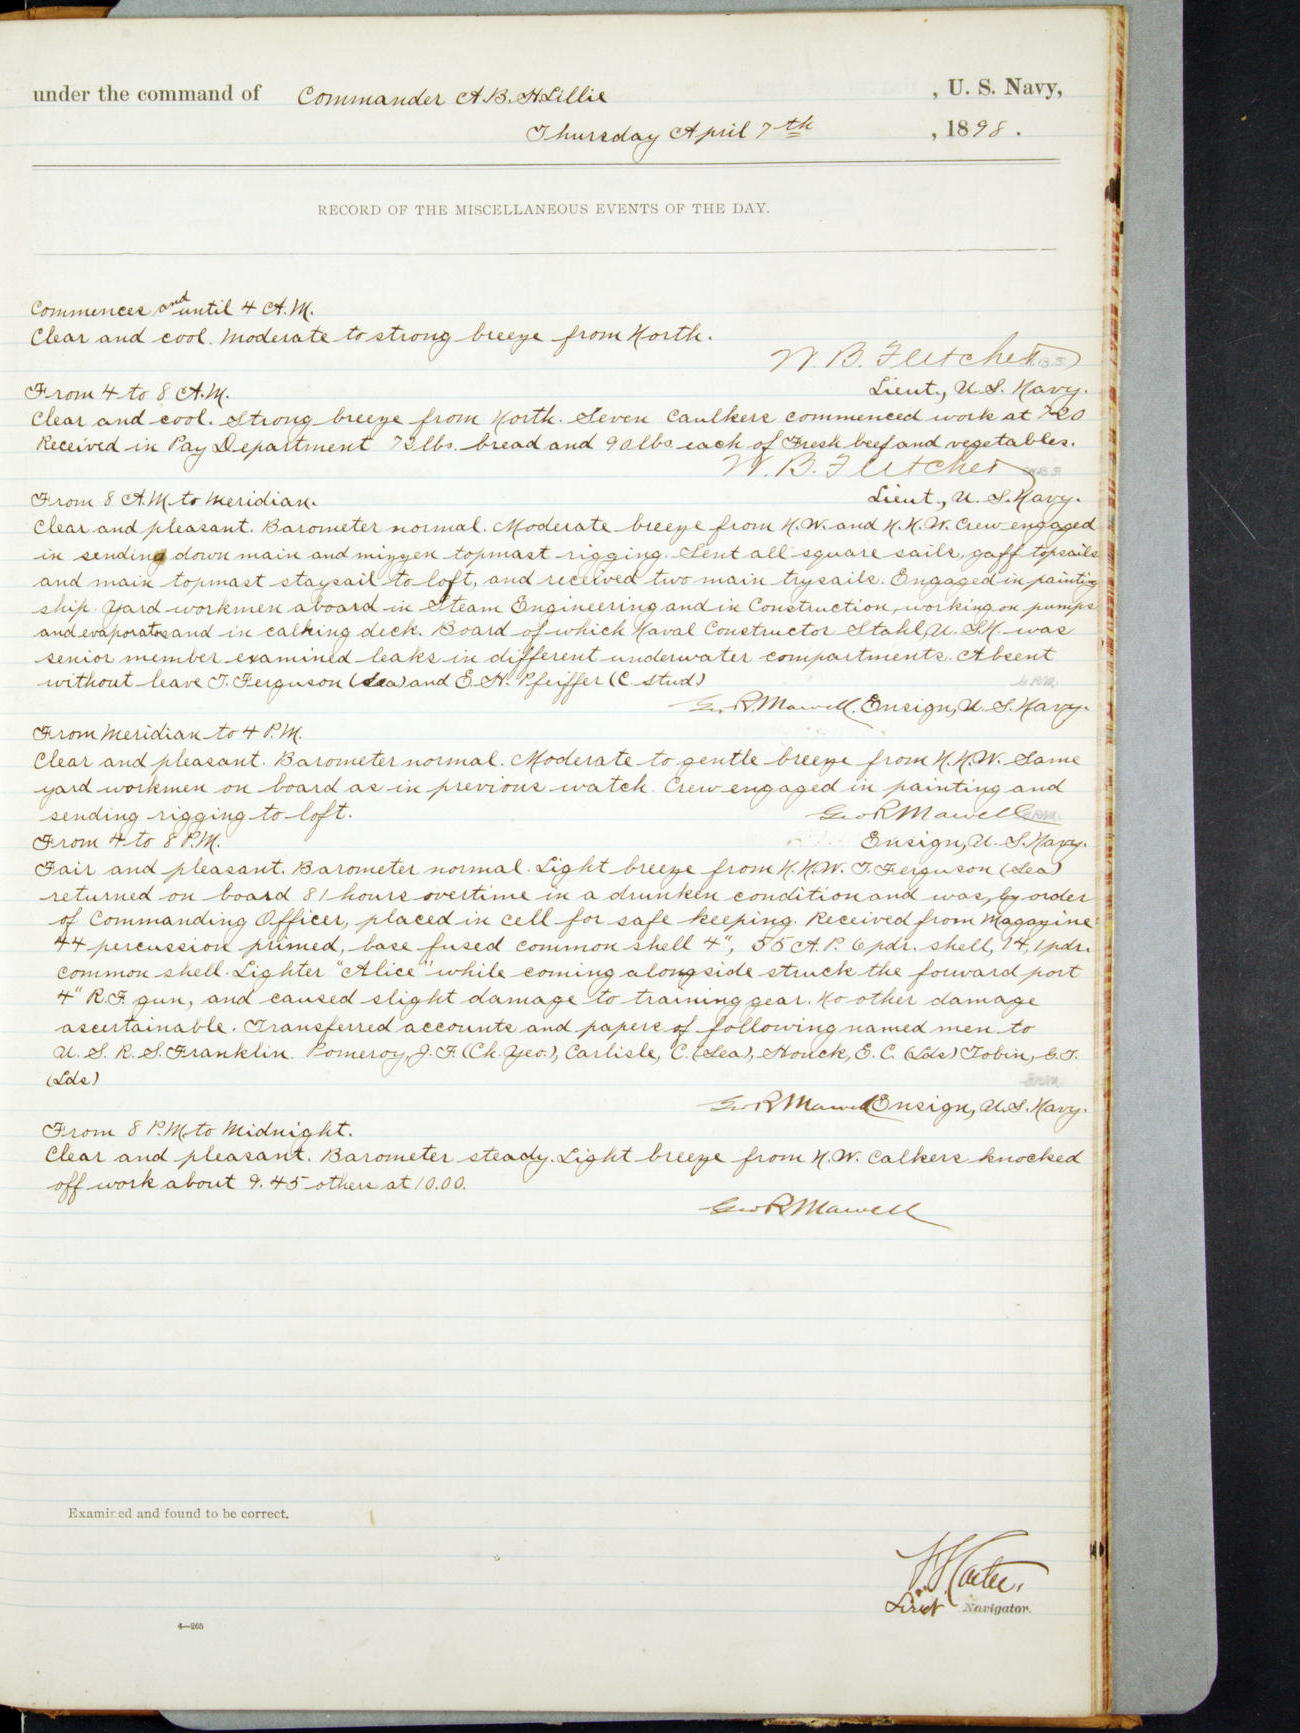 under the command of Commander A.B.H Lillie , U. S. Navy,
Thursday April 7th , 1898 .
RECORD OF THE MISCELLANEOUS EVENTS OF THE DAY.
Commences and until 4 A.M.
Clear and cool. Moderate to strong breeze from North.
W. B. Fletcher
From 4 to 8 A.M. Lieut., U.S. Navy.
Clear and cool. Strong breeze from North. Seven Caulkers commenced work at 7-20
Received in Pay Department lbs. bread and 90 lbs each of Fresh beef and vegetables.
W. B. Fletcher
From 8 A.M. to Meridian. Lieut., U.S. Navy.
Clear and pleasant. Barometer normal. Moderate breeze from N.W. and N.N.W. Crew engaged
in sending down main and mizzen topmast rigging. Sent all square sails, gaff topsails
and main topmast staysail to loft, and received two main trysails. Engaged in painting
ship. Yard workmen aboard in Steam Engineering and in Construction, working on pumps
and evaporators and in calking deck. Board of which Naval Constructor Stahl, U.S.N. was
senior member examined leaks in different underwater compartments. Absent
without leave T. Ferguson (Sea) and E.H. Pfeiffer (C. stwd)
Ensign, U.S. Navy.
From Meridian to 4 P.M.
Clear and pleasant. Barometer normal. Moderate to gentle breeze from N.N.W. Same
yard workmen on board as in previous watch. Crew engaged in painting and
sending rigging to loft. Geo R Marvell
From 4 to 8 P.M. Ensign, U.S. Navy.
Fair and pleasant. Barometer normal. Light breeze from N.N.W. T. Ferguson (Sea)
returned on board 81 hours overtime in a drunken condition and was, by order
of Commanding Officer, placed in cell for safe keeping. Received from Magazine
44 percussion primed, base fused common shell 4", 55 A.P. 6 pdr. shell, 14, 1 pdr.
common shell. Lighter "Alice" while coming alongside struck the forward port
4" R.F. gun, and caused slight damage to training gear. No other damage
ascertainable. Transferred accounts and papers of following named men to
U.S.R.S. Franklin. Pomeroy, J.F. (Ch. Yeo.), Carlisle, C. (Sea), Houck, E.C. (Lds) Tobin, G.T.
(Lds)
Geo R Marvell Ensign, U.S. Navy.
From 8 P.M. to Midnight.
Clear and pleasant. Barometer steady. Light breeze from N.W. Calkers knocked
off work about 9.45 others at 10.00.
Geo R Marvell
Examined and found to be correct.
Lieut Navigator.
4—265